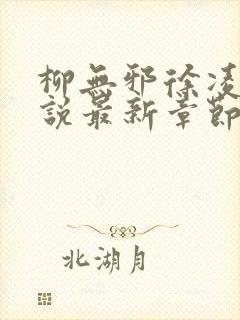 柳無邪徐凌
說最新章節
北湖月